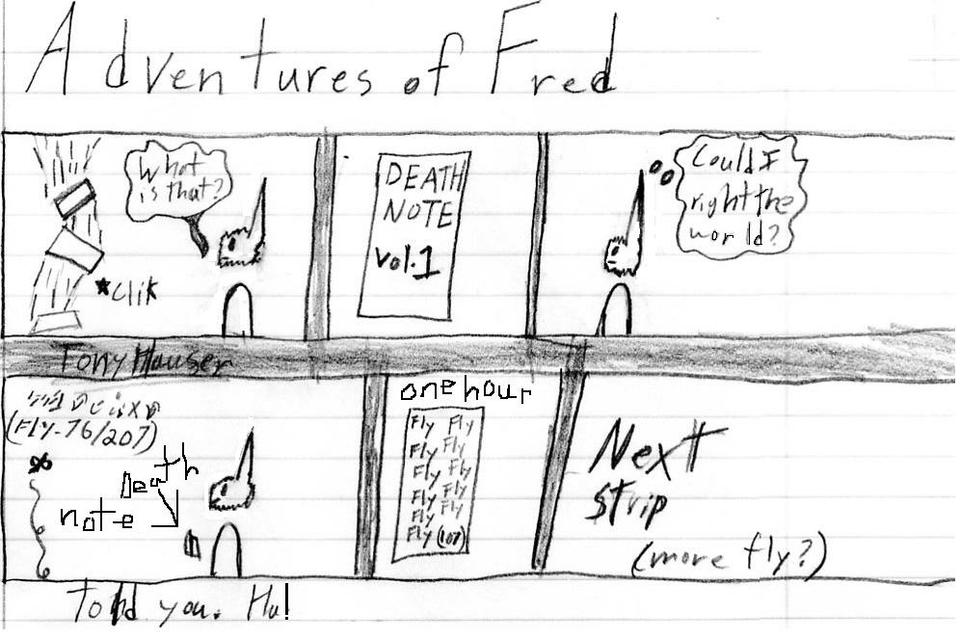 Adventures of Fred
What
is that?
*clik
DEATH
NOTE
vol.1
Could I
right the
world?
Tony Hauser
(FLY-76/207)
Death
note
one hour
Fly Fly
Fly Fly
Fly Fly
Fly Fly
Fly Fly
Fly (107)
Next
strip
(more fly?)
Told you. Ha!